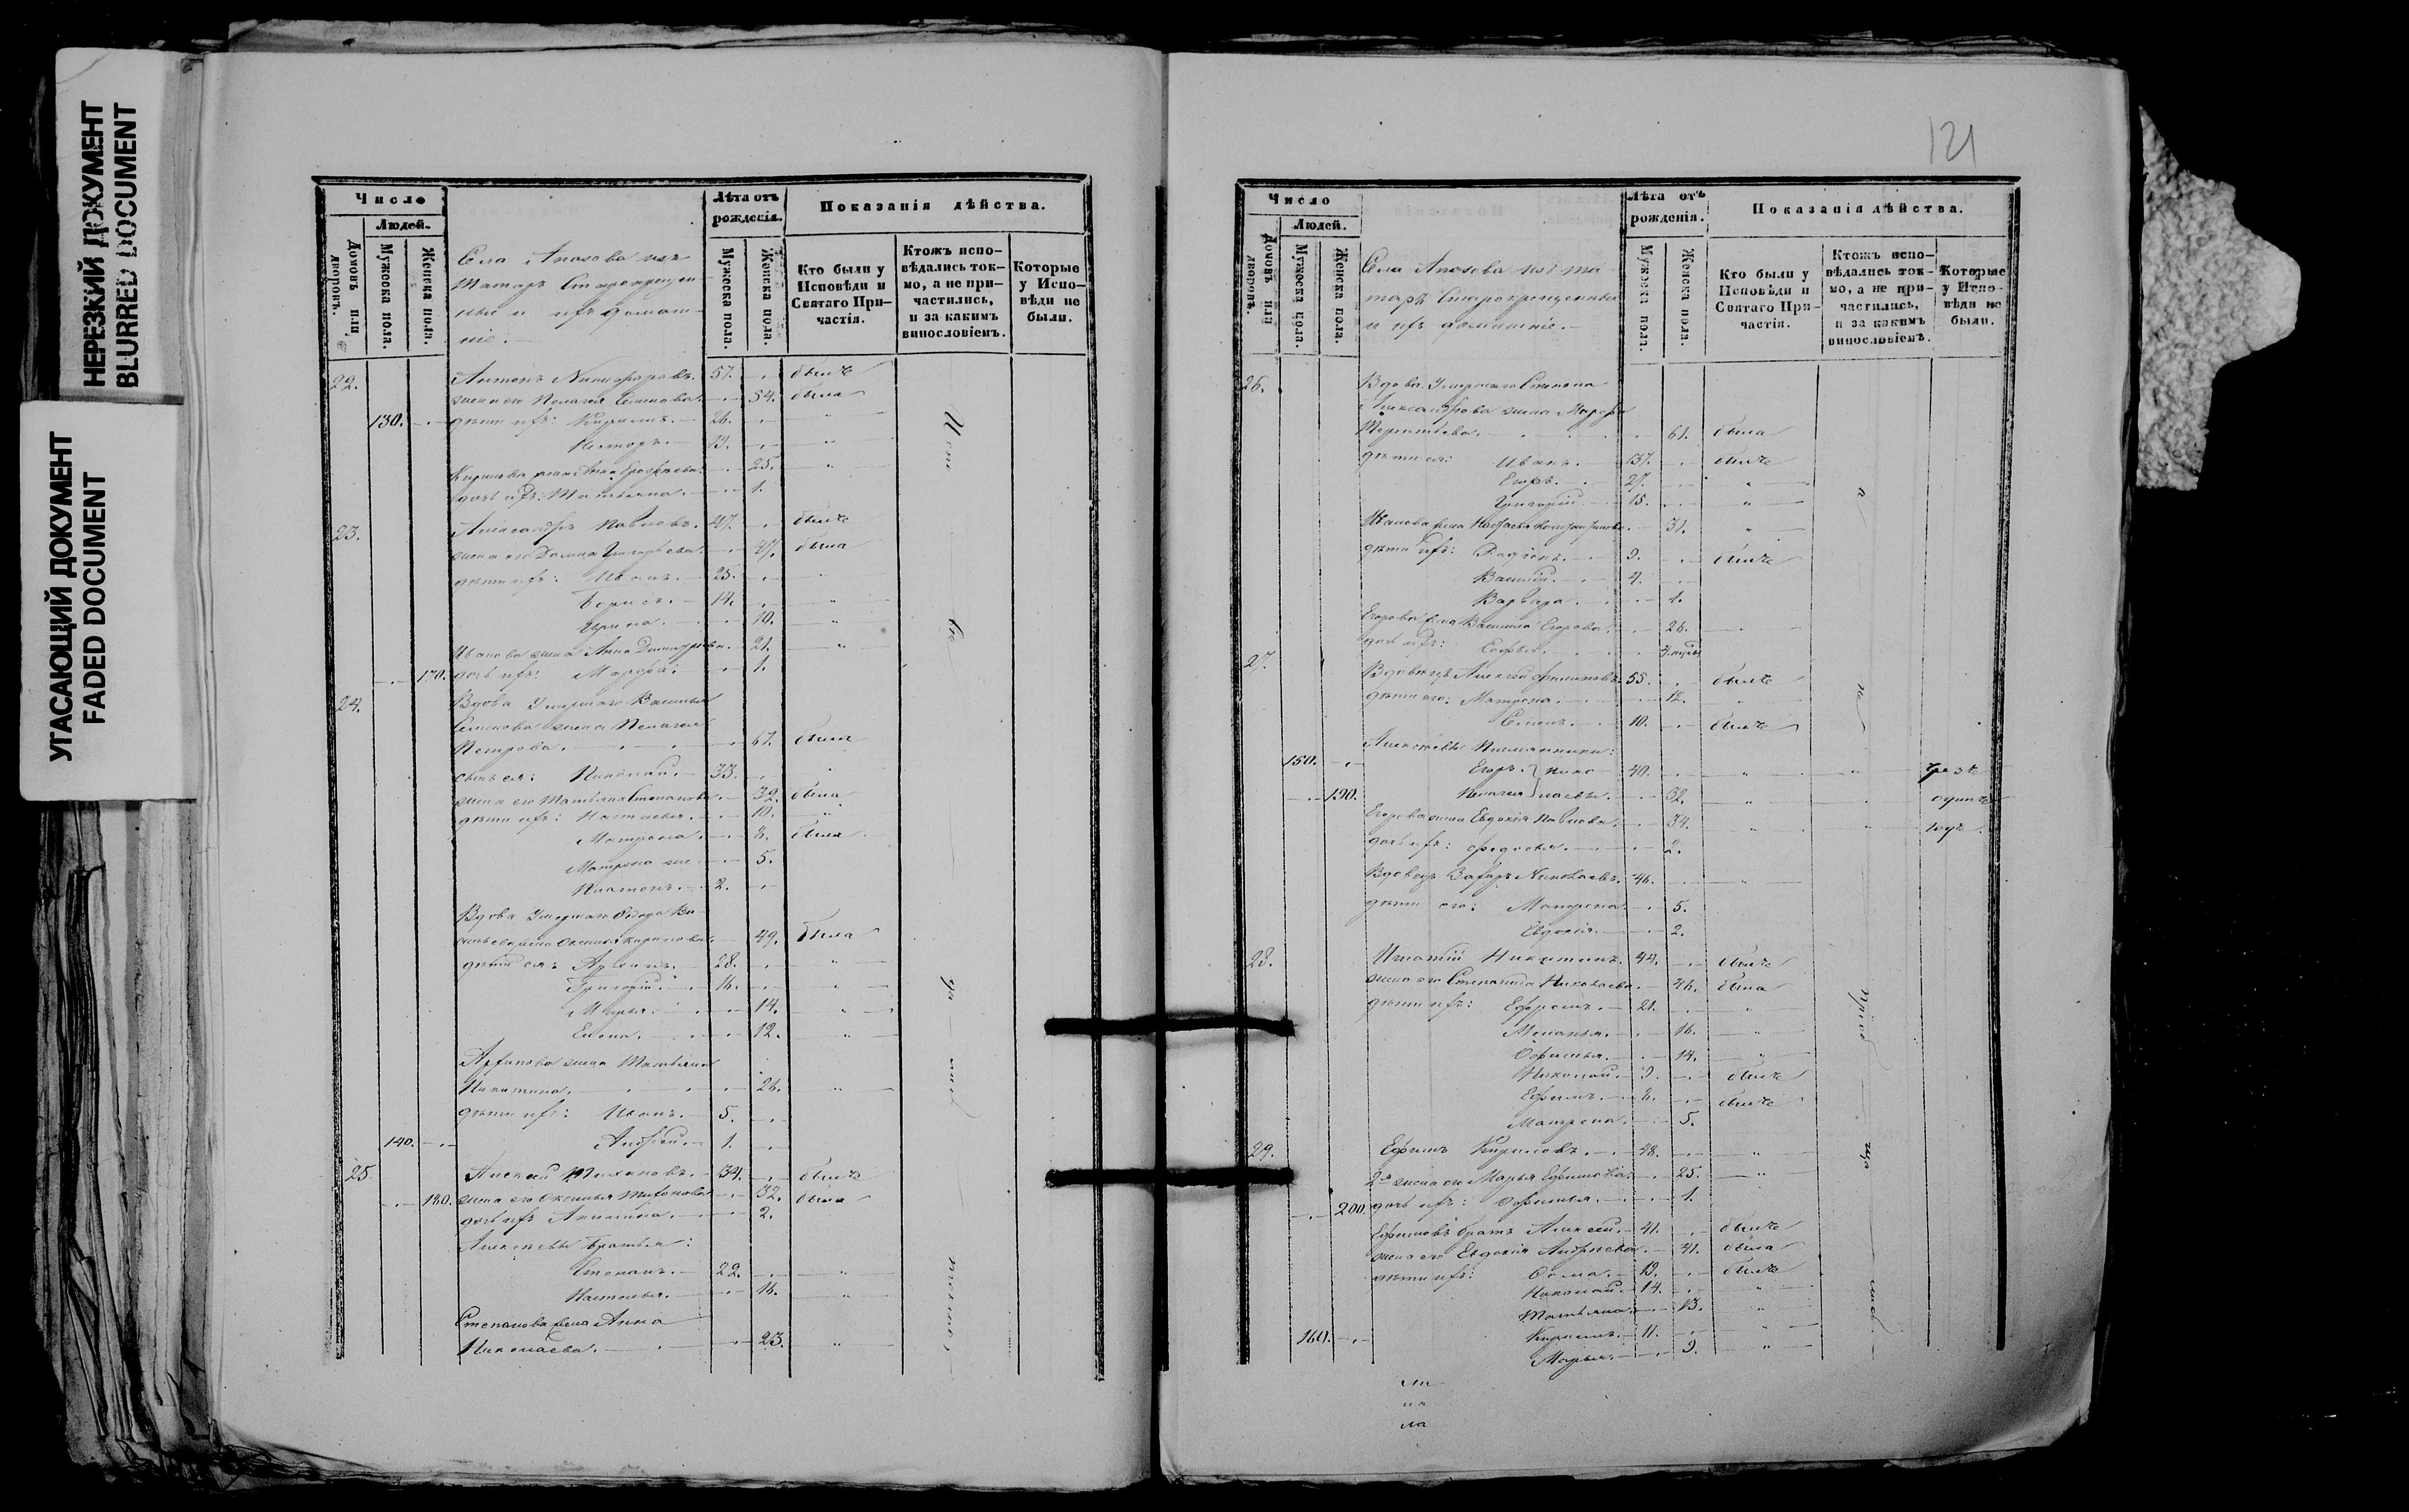 НЕРЕЗКИЙ ДОКУМЕНТ
BLURRED DOCUMENT
УГАСАЮЩИЙ ДОКУМЕНТ
FADED DOCUMENT
Число
Людей.
Домовъ или дворовъ.
Мужеска пола.
Женска пола.
Села Апазова изъ
Татаръ Старокрещен
ные и ихъ домаш-
ніе.
Лѣта отъ рожденія.
Мужеска пола.
Женска пола.
Показанія дѣйства.
Кто были у Исповѣди и Святаго При-частія.
Ктожъ испо-вѣдались ток-мо, а не при-частились, и за какимъ винословіемъ.
Которые у Испо-вѣди не были.
22. Антонъ Никифоровъ. 57. бысть
жена его Пелагея Семенова. 54. была
130. дѣти ихъ: Кирилъ. 26. "
Несторъ. 19. "
Кирилова жена Анна 25. "
дочь ихъ: Татьяна. 1.
23. Александръ Павловъ. 47. бысть
жена его Домна Григорьева. 47. была
дѣти ихъ: Иванъ. 25. "
Борисъ. 14. "
Ирина. 10. "
Иванова жена Анна Димитріева. 21. "
170. дочь ихъ: Марфа. 1.
24. Вдова Умершаго Василья
Семенова жена Пелагея
Петрова. 67. была
сынъ ея: Николай. 33. "
жена его Татьяна Степанова. 32. была
дѣти ихъ: Настасья. 10. "
Матрона. 8. была
Матрона же 5.
Платонъ. 2.
Вдова Умершаго Ѳедора Ва-
сильева жена Оксинья Кирилова. 49. была
дѣти ея: Архипъ. 28. "
Григорій. 16. "
Марья. 14. "
Елена. 12. "
Архипова жена Татьяна
Никитина. 26. "
дѣти ихъ: Иванъ. 5.
140. Андрей. 1.
25. Алексѣй Тихоновъ. 34. бысть
180. жена его Оксинья Тихонова 32. была
дочь ихъ Акилина. 2.
Алексѣевы братья:
Степанъ. 22. "
Настасья. 16. "
Степанова жена Анна
Николаева. 23. "
121
Число
Людей.
Домовъ или дворовъ.
Мужеска пола.
Женска пола.
Села Апазова изъ та-
таръ Старокрещенные
и ихъ домашніе.
Лѣта отъ рожденія.
Мужеска пола.
Женска пола.
Показанія дѣйства.
Кто были у Исповѣди и Святаго При-частія.
Ктожъ испо-вѣдались ток-мо, а не при-частились, и за какимъ винословіемъ.
Которые у Испо-вѣди не были.
26. Вдова Умершаго Степана
Александрова жена Марфа
Терентьева. 61. была
дѣти ея: Иванъ. 37. бысть
Егоръ. 27. "
Григорій. 15. "
Иванова жена 31. "
дѣти ихъ: Родіонъ. 9. бысть
Василій. 4.
Варвара. 1.
Егорова жена Василиса Егорова. 26. "
дочь ихъ: Софья.
27. Вдовецъ Алексѣй Филиповъ. 55. бысть
дѣти его: Матрона. 12. "
Семенъ. 10. бысть
Алексѣевы племянники:
150. Егоръ } Нико- 40. " " чрезъ
190. Пелагея } лаевы. 32. " " одинъ
Егорова жена Евдокія Павлова. 34. " " годъ.
дочь ихъ: Федосья. 2.
Вдовецъ Захаръ Николаевъ. 46. "
дѣти его: Матрена. 5.
Евдокія. 2.
28. Игнатій Никитинъ. 44. бысть
жена его Степанида Николаева. 46. была
дѣти ихъ: Ефремъ. 21. "
Меланья. 16. "
Офимья. 14. "
Николай. 9. бысть
Ефимъ. 8. бысть
Матрена. 5.
29. Ефимъ Кириловъ. 48. "
2я жена его Марья Ефимова. 25. "
200. дочь ихъ: Офимья. 1.
Ефимовъ братъ Алексѣй. 41. бысть
жена его Евдокія Андреева. 41. была
дѣти ихъ: Ѳома. 19. бысть
Николай. 14. "
Татьяна. 13. "
160. Кирилъ. 11. "
Марья. 9. "